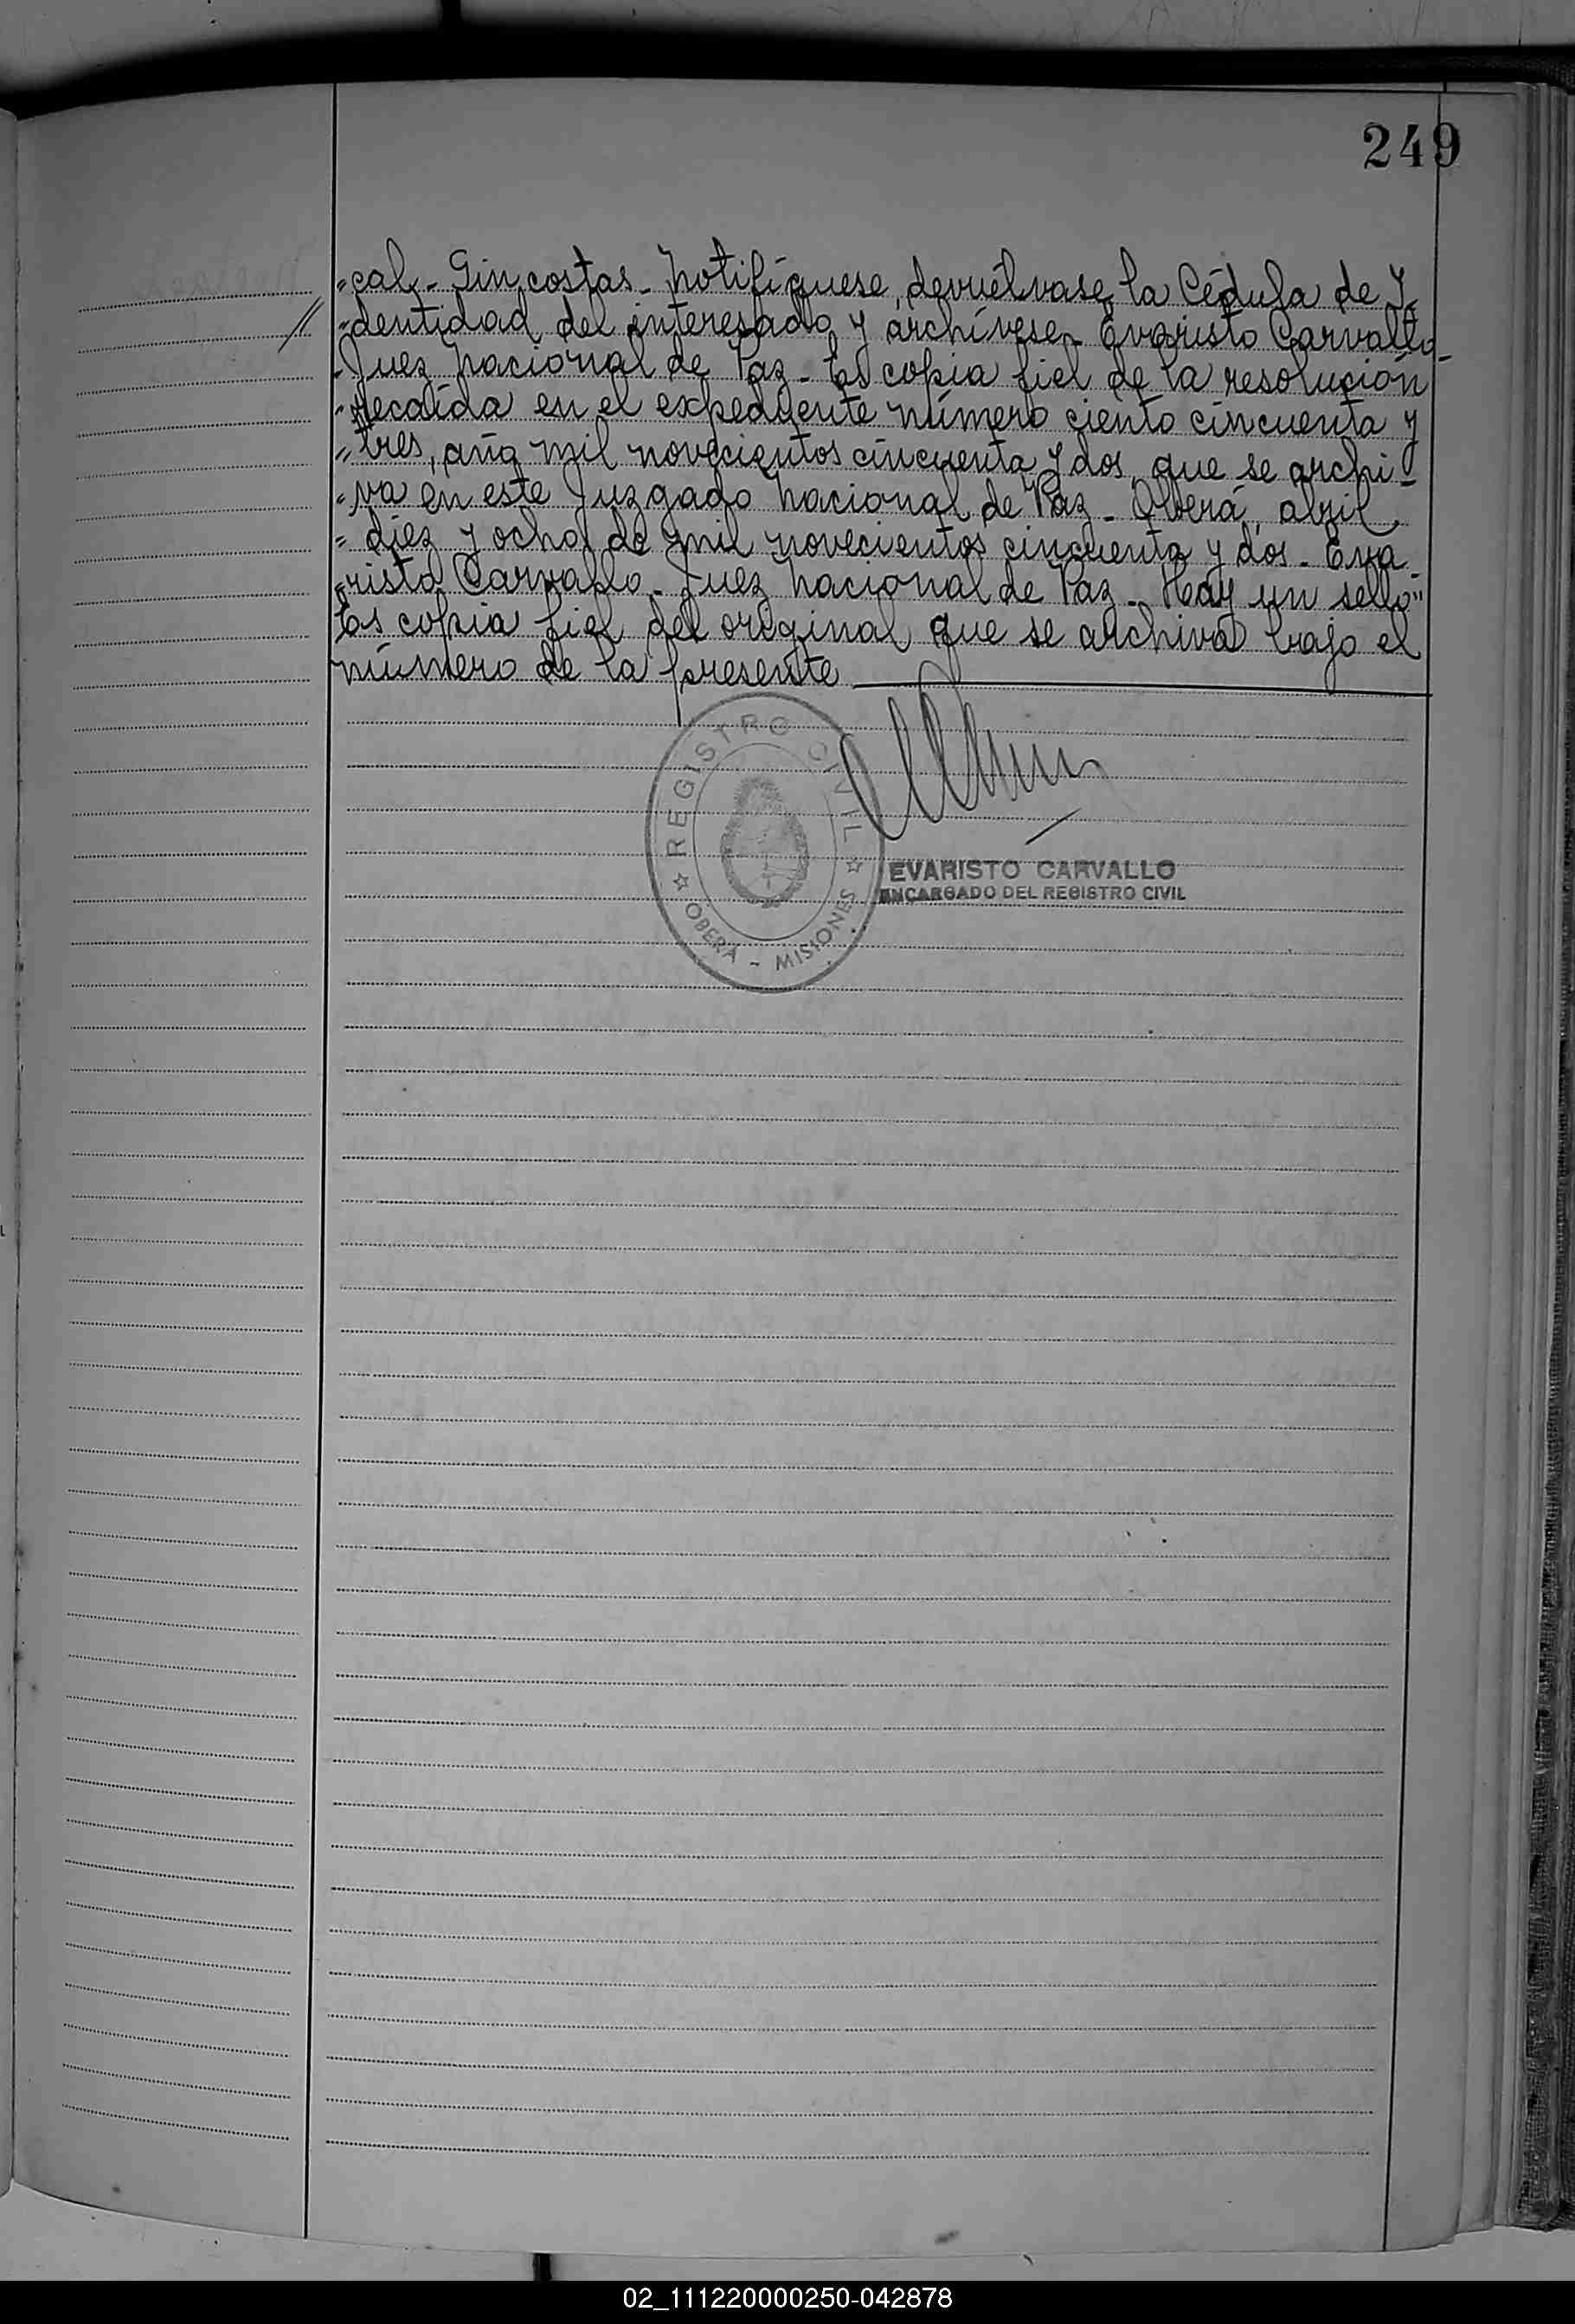 249
"cal. Sin costas. Notifíquese, devuélvase la Cédula de I-
"dentidad del interesado y archívese. Evaristo Carvallo.
Juez Nacional de Paz. Es copia fiel de la resolución
"recaída en el expediente número ciento cincuenta y
"tres, año mil novecientos cincuenta y dos, que se archi-
"va en este Juzgado Nacional de Paz. Oberá, abril
"diez y ocho de mil novecientos cincuenta y dos. Eva-
"risto Carvallo. Juez Nacional de Paz. Hay un sello"
Es copia fiel del original que se archiva bajo el
número de la presente
REGISTRO CIVIL
OBERA - MISIONES
EVARISTO CARVALLO
ENCARGADO DEL REGISTRO CIVIL
02_111220000250-042878